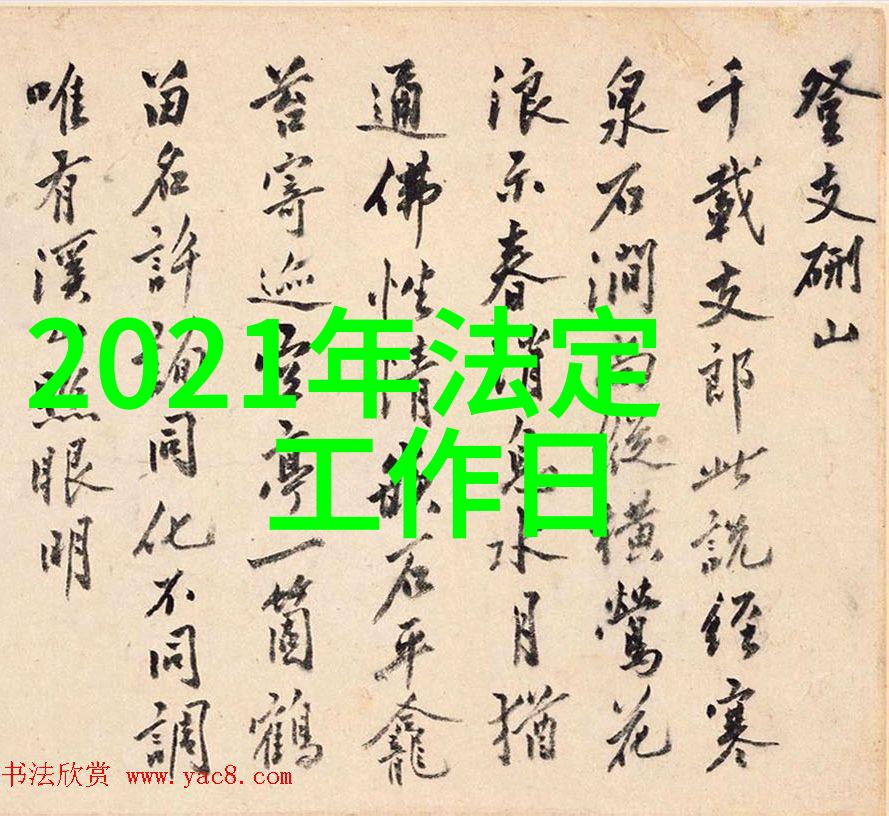 登支硎山
千載支郎此說經寒
泉石澗尚縱橫鶯花
浪示春消息水月猶
通佛性情石平龕
苔寄空亭一箇鶴
留名許詢同化不同調
唯有溪照眼明
2021年法定
工作日
书法欣赏 www.yac8.com